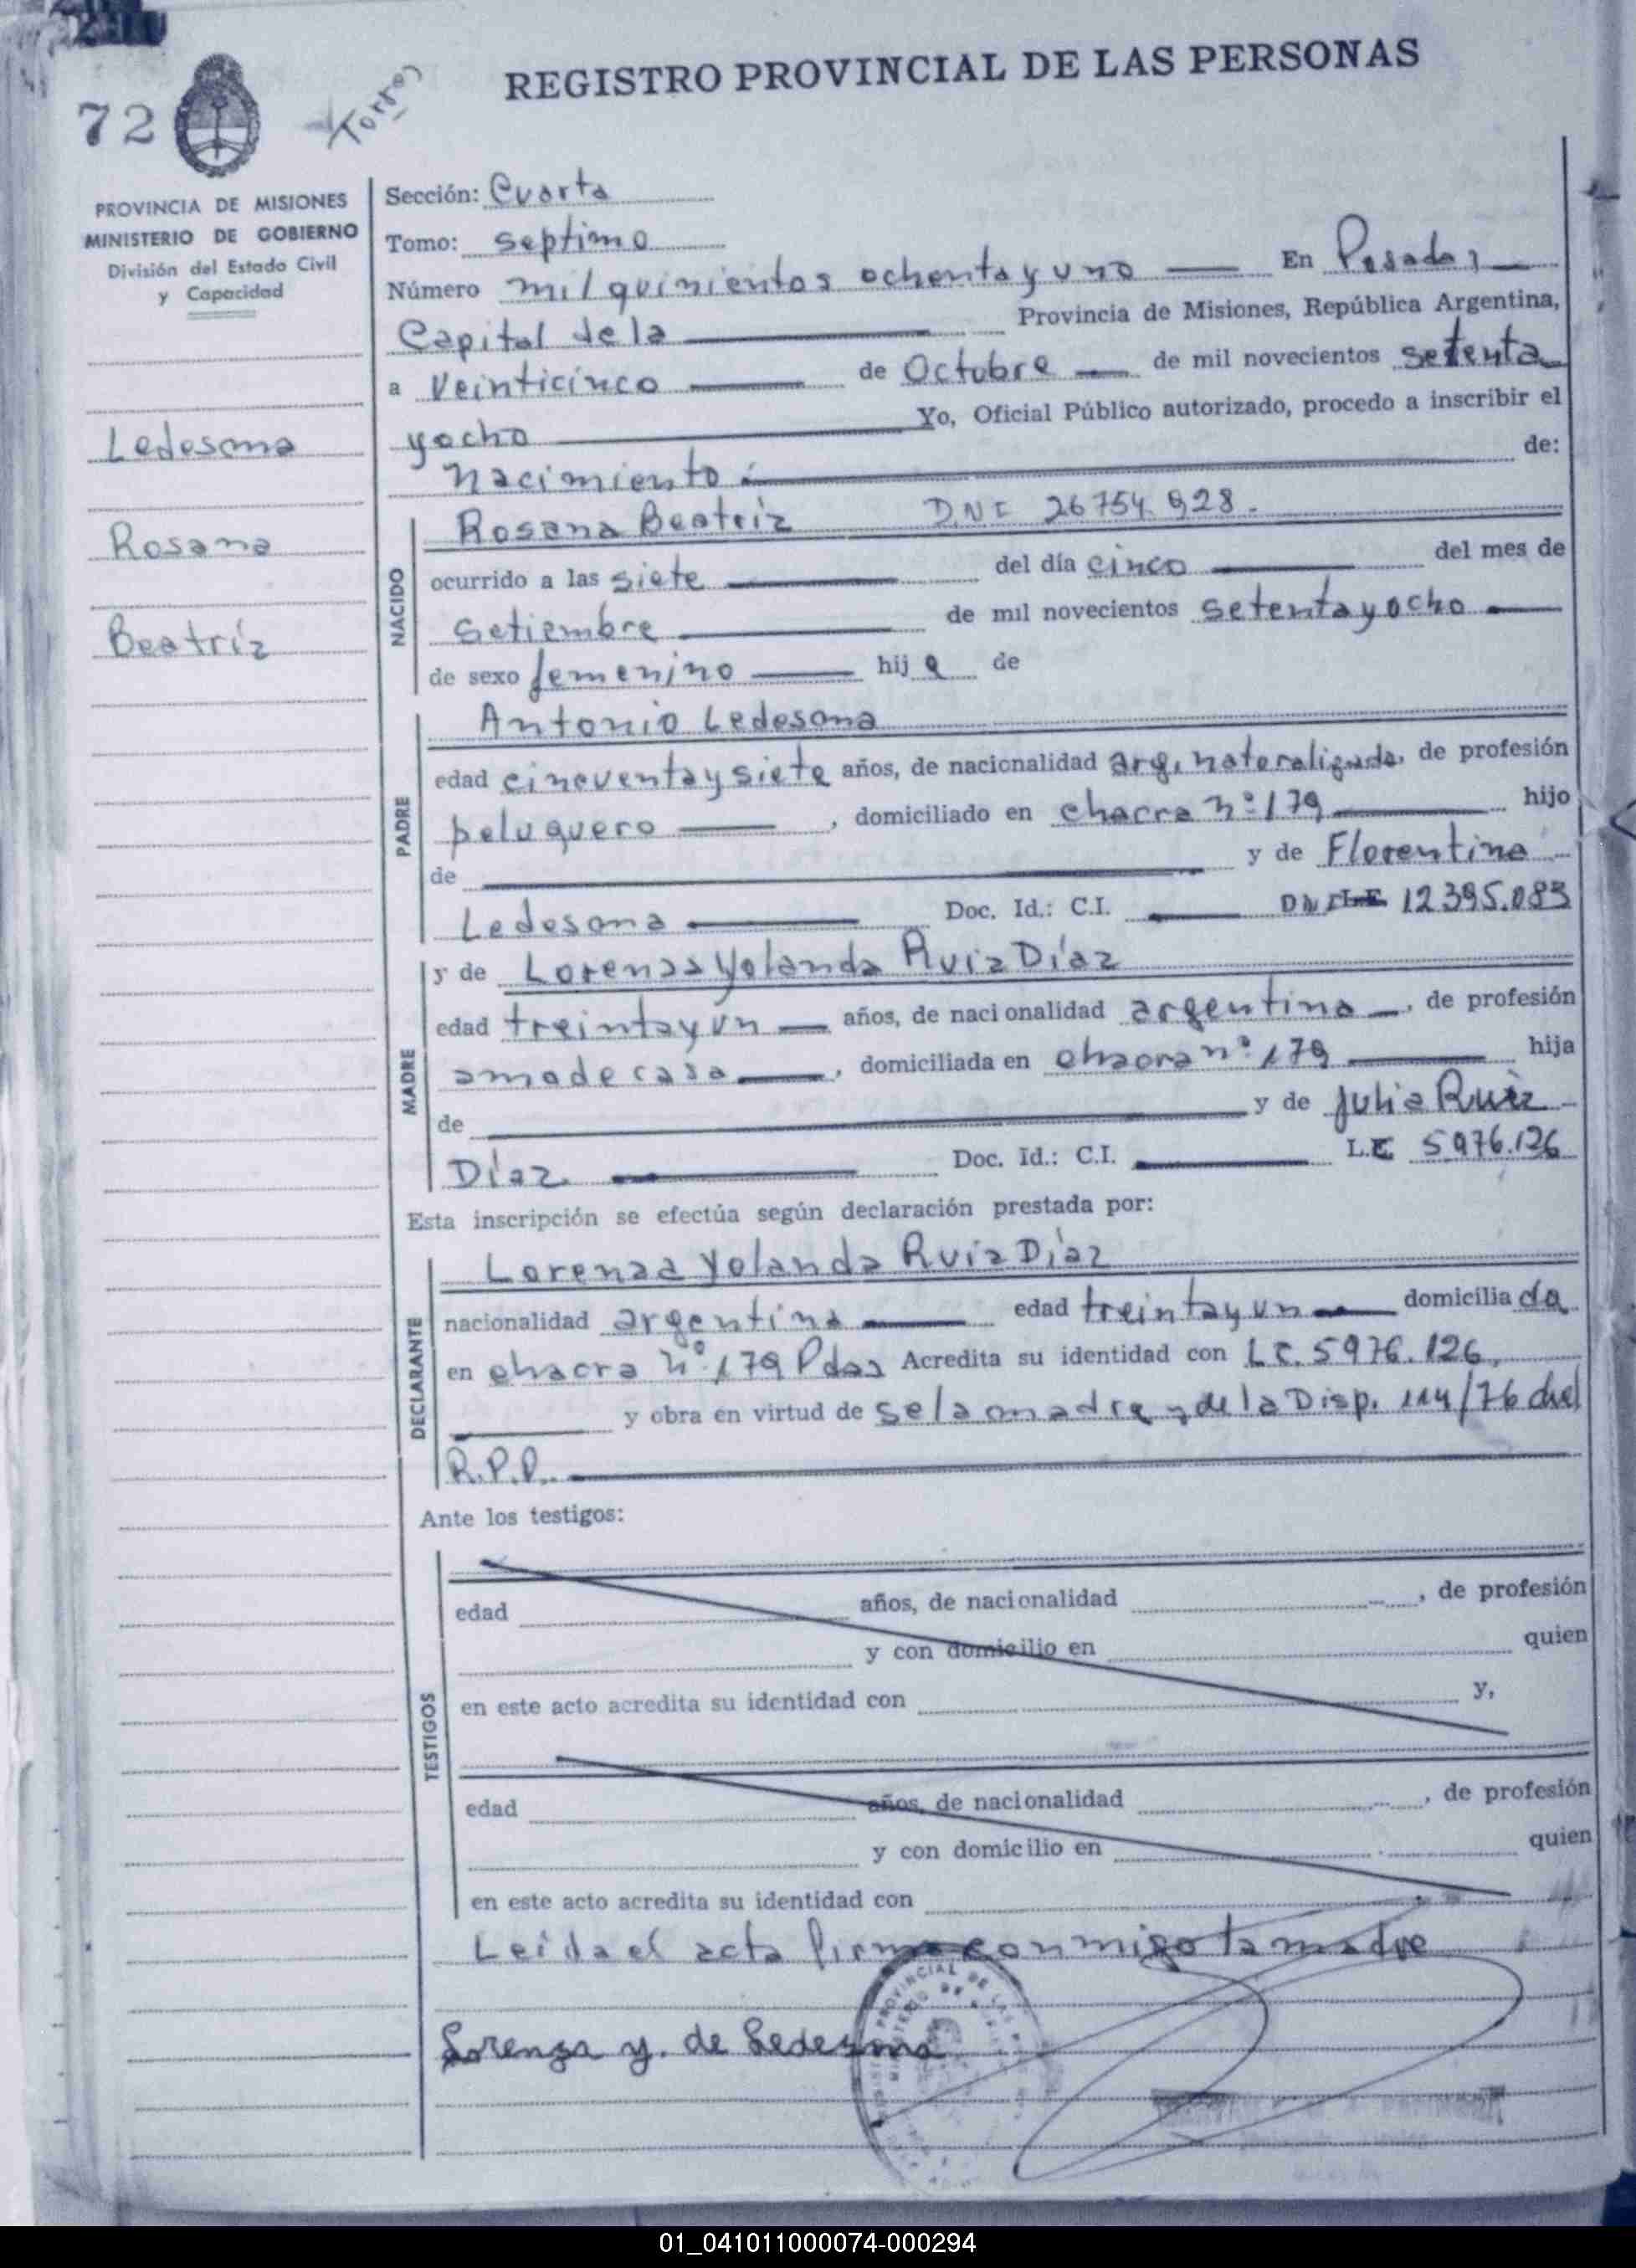 REGISTRO PROVINCIAL DE LAS PERSONAS
72
Torres
PROVINCIA DE MISIONES
MINISTERIO DE GOBIERNO
División del Estado Civil
y Capacidad
Ledesma
Rosana
Beatríz
Sección: Cuarta
Tomo: septimo
Número mil quinientos ochenta y uno En Posadas
Capital de la Provincia de Misiones, República Argentina,
a veinticinco de Octubre de mil novecientos setenta
y ocho Yo, Oficial Público autorizado, procedo a inscribir el
nacimiento de:
NACIDO
Rosana Beatriz DNI 26754.928.
ocurrido a las siete del día cinco del mes de
setiembre de mil novecientos setenta y ocho
de sexo femenino hija de
PADRE
Antonio Ledesma
edad cincuenta y siete años, de nacionalidad arg. naturalizado, de profesión
peluquero, domiciliado en chacra nº 179 hijo
de y de Florentina
Ledesma Doc. Id.: C.I. DNI 12395.083
MADRE
y de Lorenza Yolanda Ruiz Díaz
edad treinta y un años, de nacionalidad argentina, de profesión
ama de casa, domiciliada en chacra nº 179 hija
de y de Julia Ruiz
Díaz Doc. Id.: C.I. L.C 5976.126
Esta inscripción se efectúa según declaración prestada por:
DECLARANTE
Lorenza Yolanda Ruiz Díaz
nacionalidad argentina edad treinta y un domiciliada
en chacra nº 179 Pdas Acredita su identidad con LC. 5976.126,
y obra en virtud de se la madre y de la Disp. 114/76 del
R.P.P.
Ante los testigos:
TESTIGOS
edad años, de nacionalidad, de profesión
y con domicilio en quien
en este acto acredita su identidad con y,
edad años, de nacionalidad, de profesión
y con domicilio en quien
en este acto acredita su identidad con
Leída el acta firma conmigo la madre
Lorenza y. de Ledesma
01_041011000074-000294